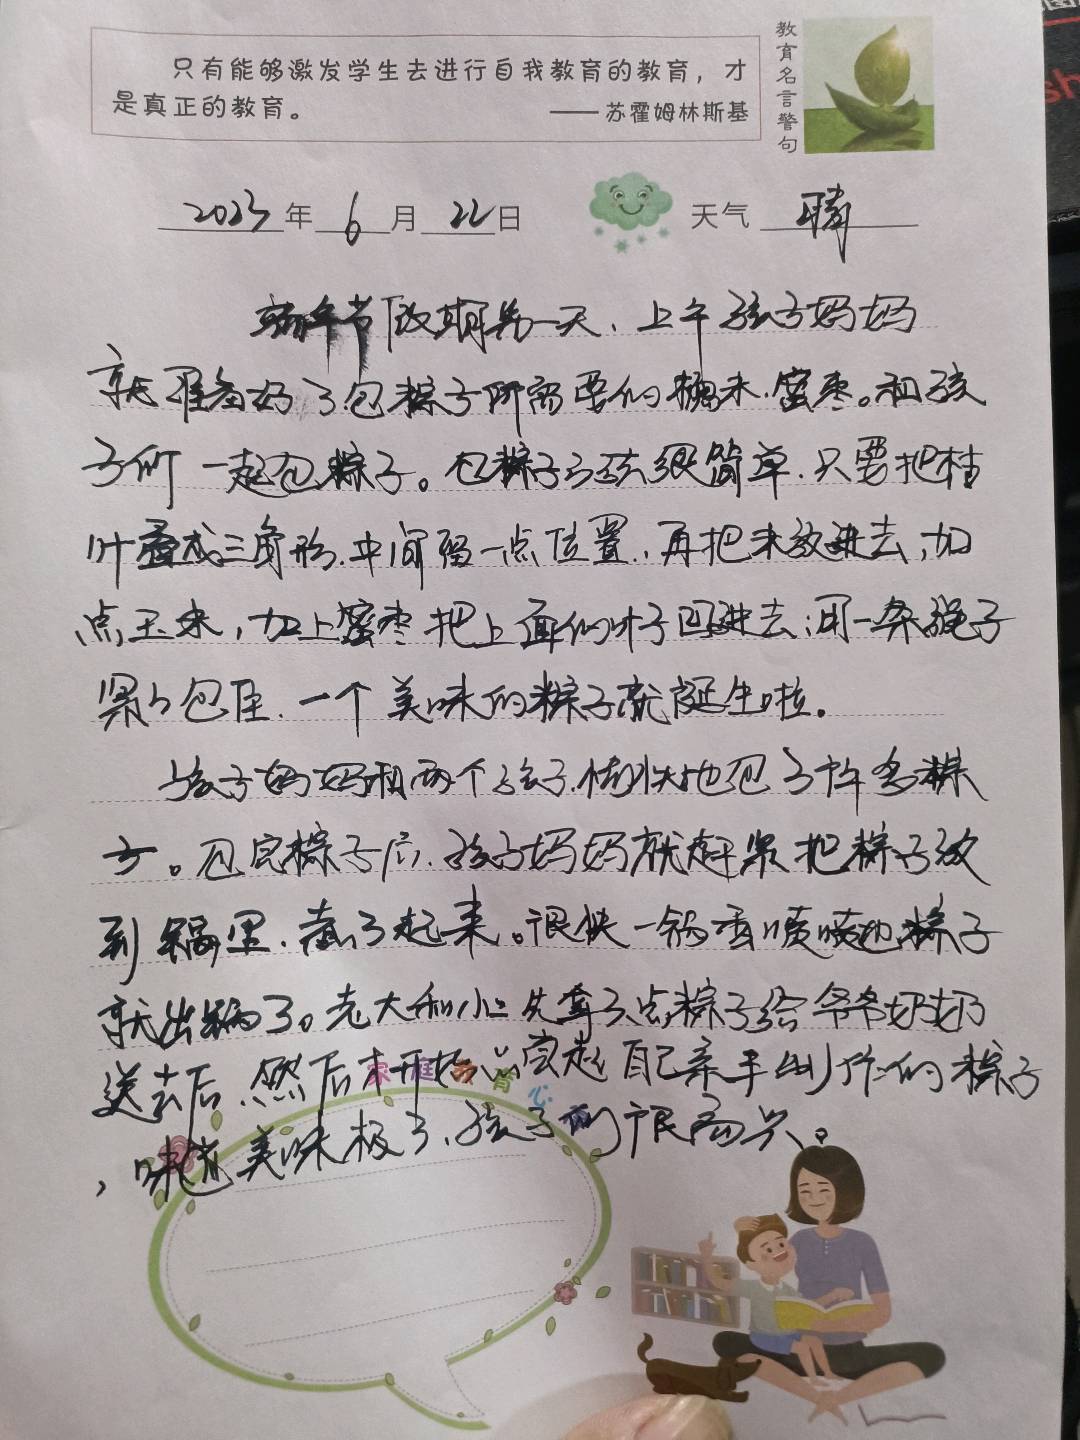 只有能够激发学生去进行自我教育的教育，才
是真正的教育。
——苏霍姆林斯基
教育名言警句
2023年6月22日 天气 晴
端午节放期第一天、上午孩子妈妈
就准备好了包粽子所需要的糯米、蜜枣。和孩
子们一起包粽子。包粽子方法很简单、只要把
叶叠成三角形、中间留一点位置、再把米放进去，加
点玉米，加上蜜枣把上面的叶子回进去，用一条绳子
紧紧包住、一个美味的粽子就诞生啦。
孩子妈妈和两个孩子愉快地包了许多粽
子。包完粽子后、孩子妈妈就赶紧把粽子放
到锅里、煮了起来。很快一锅香喷喷地粽子
就出锅了。老大和小二先拿了点粽子给爷爷奶奶
送去后，然后才开始品尝起自己亲手制作的粽子
，味道美味极了、孩子们很高兴。
家庭教育心